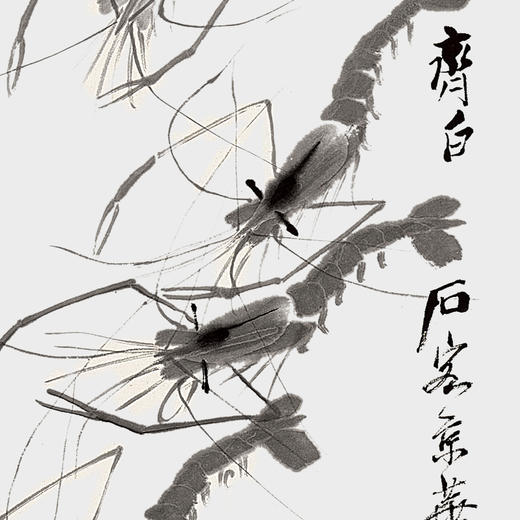 齊白石客京華